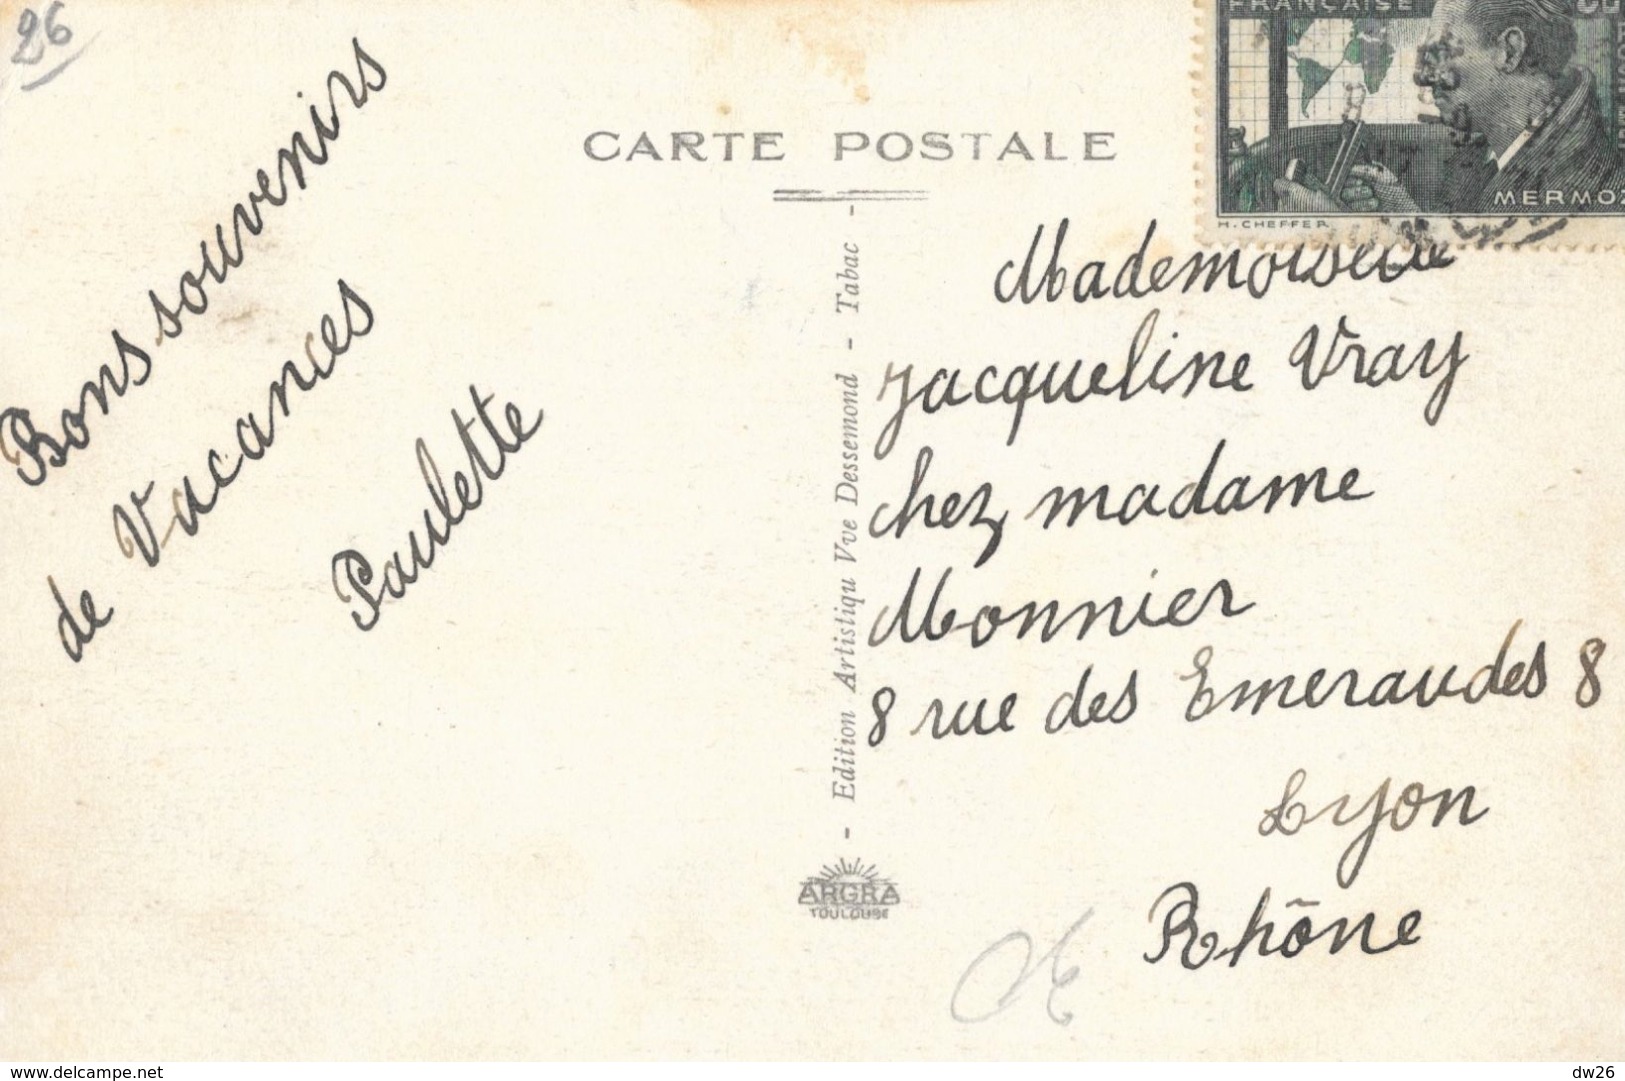 26
CARTE POSTALE
FRANÇAISE
MERMOZ
H. CHEFFER
Bons souvenirs
de Vacances
Paulette
- Edition Artistiqu Vve Dessemond - Tabac -
ARGRA
TOULOUSE
Mademoiselle
Jacqueline Vray
chez madame
Monnier
8 rue des Emeraudes 8
Lyon
Rhône
www.delcampe.net
dw26